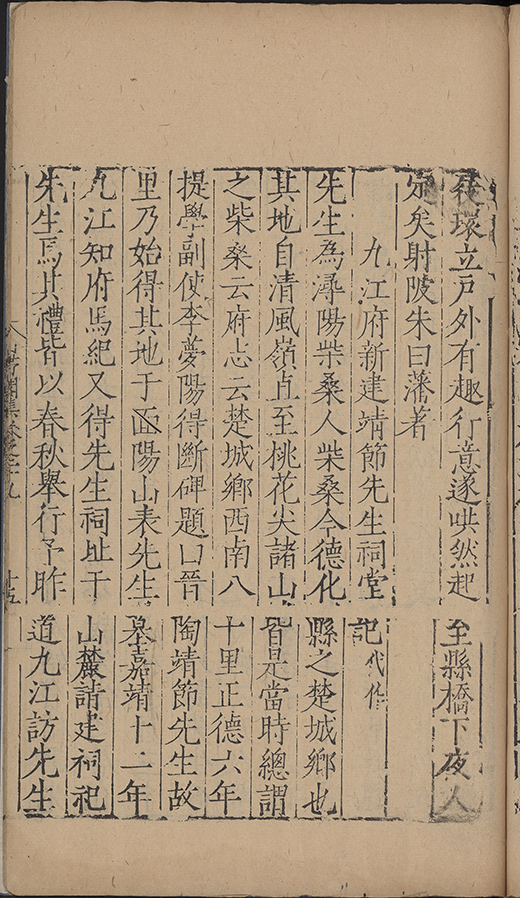 從環立戶外有趣行意遂哄然起至縣橋下夜人
定矣射陂朱曰藩著
九江府新建靖節先生祠堂記代作
先生為潯陽柴桑人柴桑今德化縣之楚城鄉也
其地自清風嶺直至桃花尖諸山皆是當時總謂
之柴桑云府志云楚城鄉西南八十里正德六年
提學副使李夢陽得斷碑題曰晉陶靖節先生故
里乃始得其地于面陽山表先生墓嘉靖十二年
九江知府馬紀又得先生祠址于山麓請建祠祀
先生焉其禮皆以春秋舉行予昨道九江訪先生
集卷之十九
十五